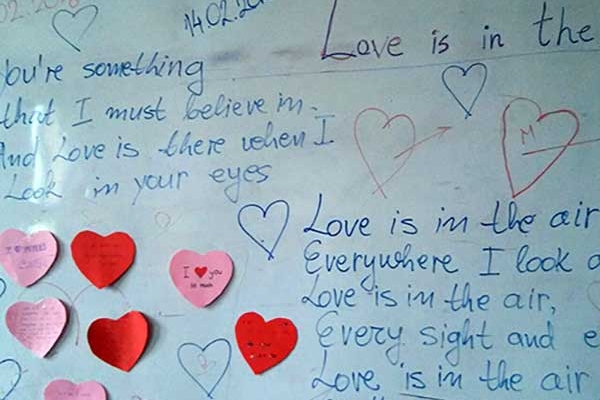 14.02.20
Love is in the
You're something
that I must believe in.
And Love is there when I
Look in your eyes
Love is in the air
Everywhere I look a
Love is in the air,
Every sight and e
Love is in the air
M
I ♥ you
so much